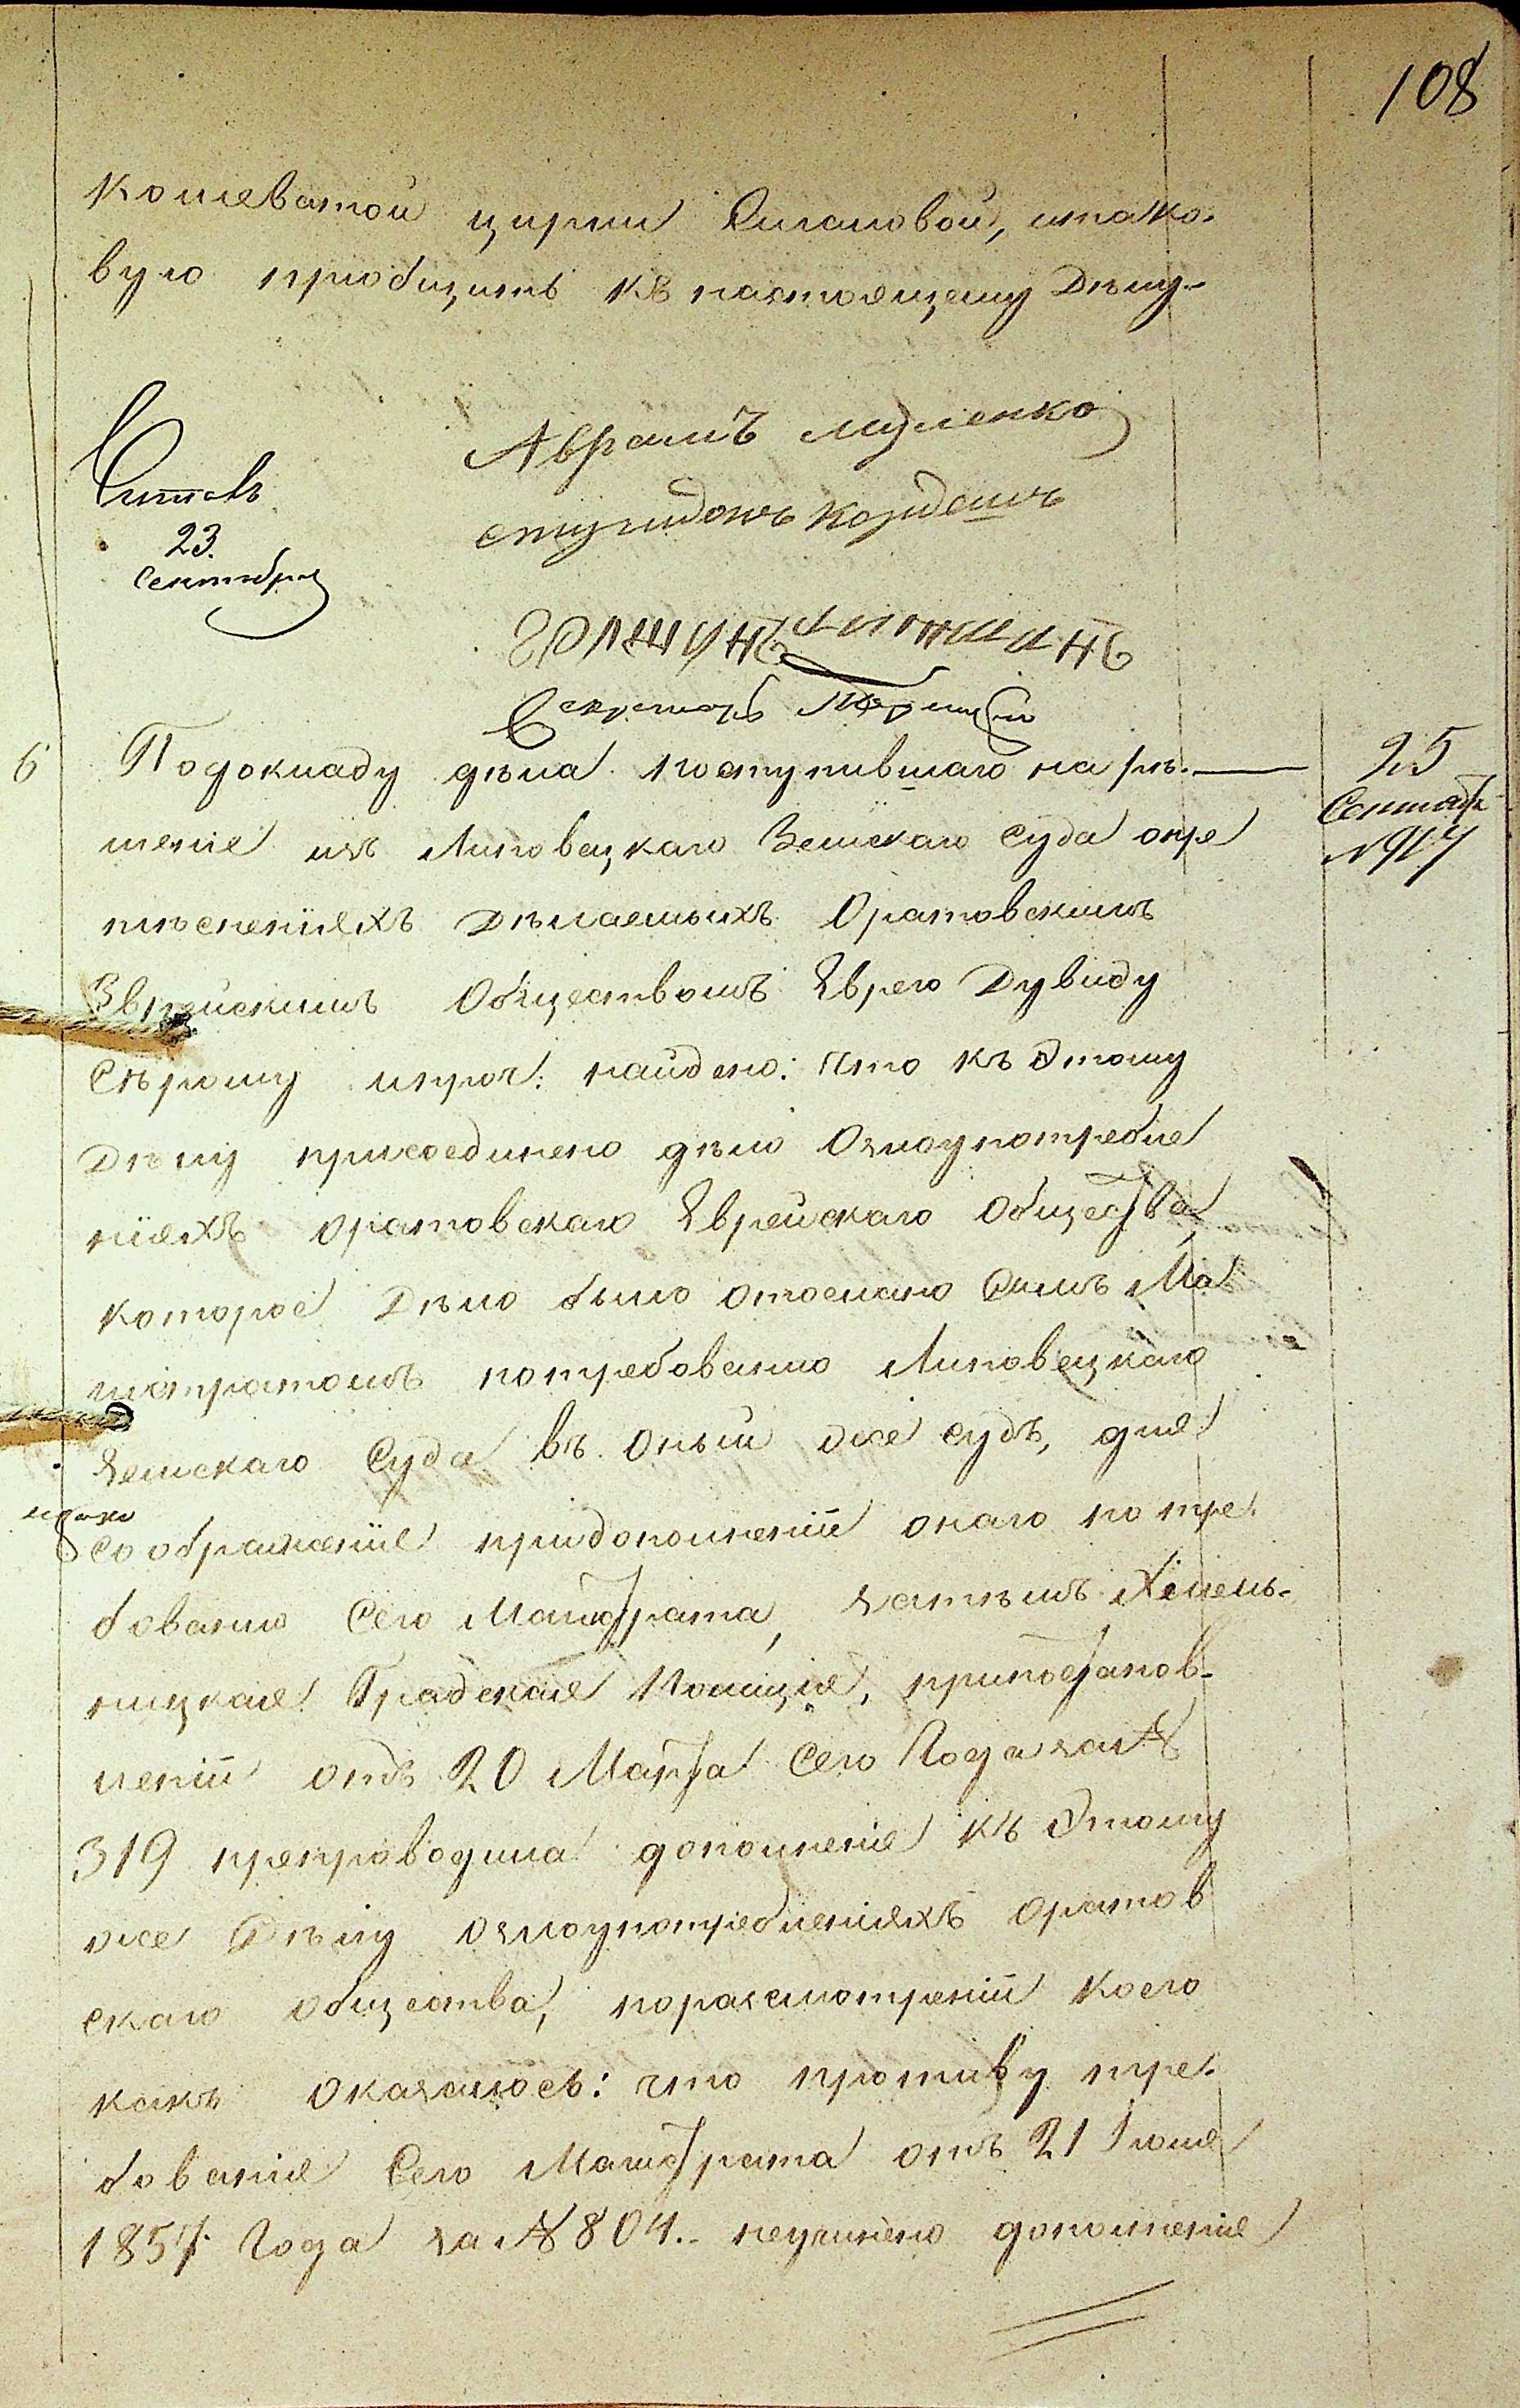 108
Кошеватой Цирли Окиловой, итако-
вую приобщить къ настоящему Дѣлу.
Авраамъ
Читалъ
23.
Сентября
Секретарь
6 Подокладу дѣла поступившаго на рѣ-
25
Сентяб
№ 917
шеніе изъ Липовецкаго Земскаго Суда опре
тѣсненіяхъ Дѣлаемыхъ Оратовскимъ
Еврейскимъ Обществомъ Еврею Дувиду
Сѣрому ипроч: найдено: что къ Этому
Дѣлу присоединено дѣло Озлоупотребле
ніяхъ Оратовскаго Еврейскаго Общества,
которое Дѣло было отослано Симъ Ма
гистратомъ потребованію Липовецкаго
Земскаго Суда въ Оный же Судъ, для
соображенія придополненіи онаго потре-
бованію Сего Магистрата, затѣмъ Хмель-
ницкая Градская Полиція, припостанов-
леніи отъ 20 Марта Сего Года за №
319 препроводила дополненіе къ Этому
же Дѣлу Озлоупотребленіяхъ Оратов
скаго Общества, поразсмотреніи Коего
какъ Оказалось: что противу тре-
бованія Сего Магистрата отъ 21 Іюля
1857 Года за № 804. неучинено дополненія